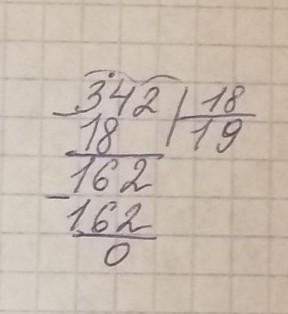 342 | 18
18 | 19
162
162
0